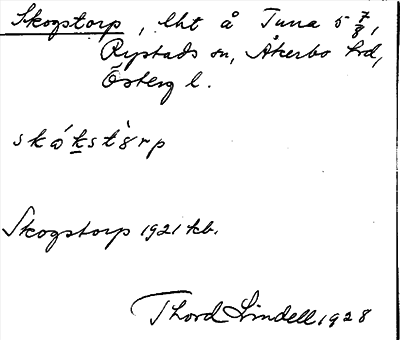 Skogstorp, lht å Tuna 5 7/8,
Rystads sn, Åkerbo hd,
Österg l.
skókstòrp
Skogstorp 1921 kb.
Thord Lindell 1928